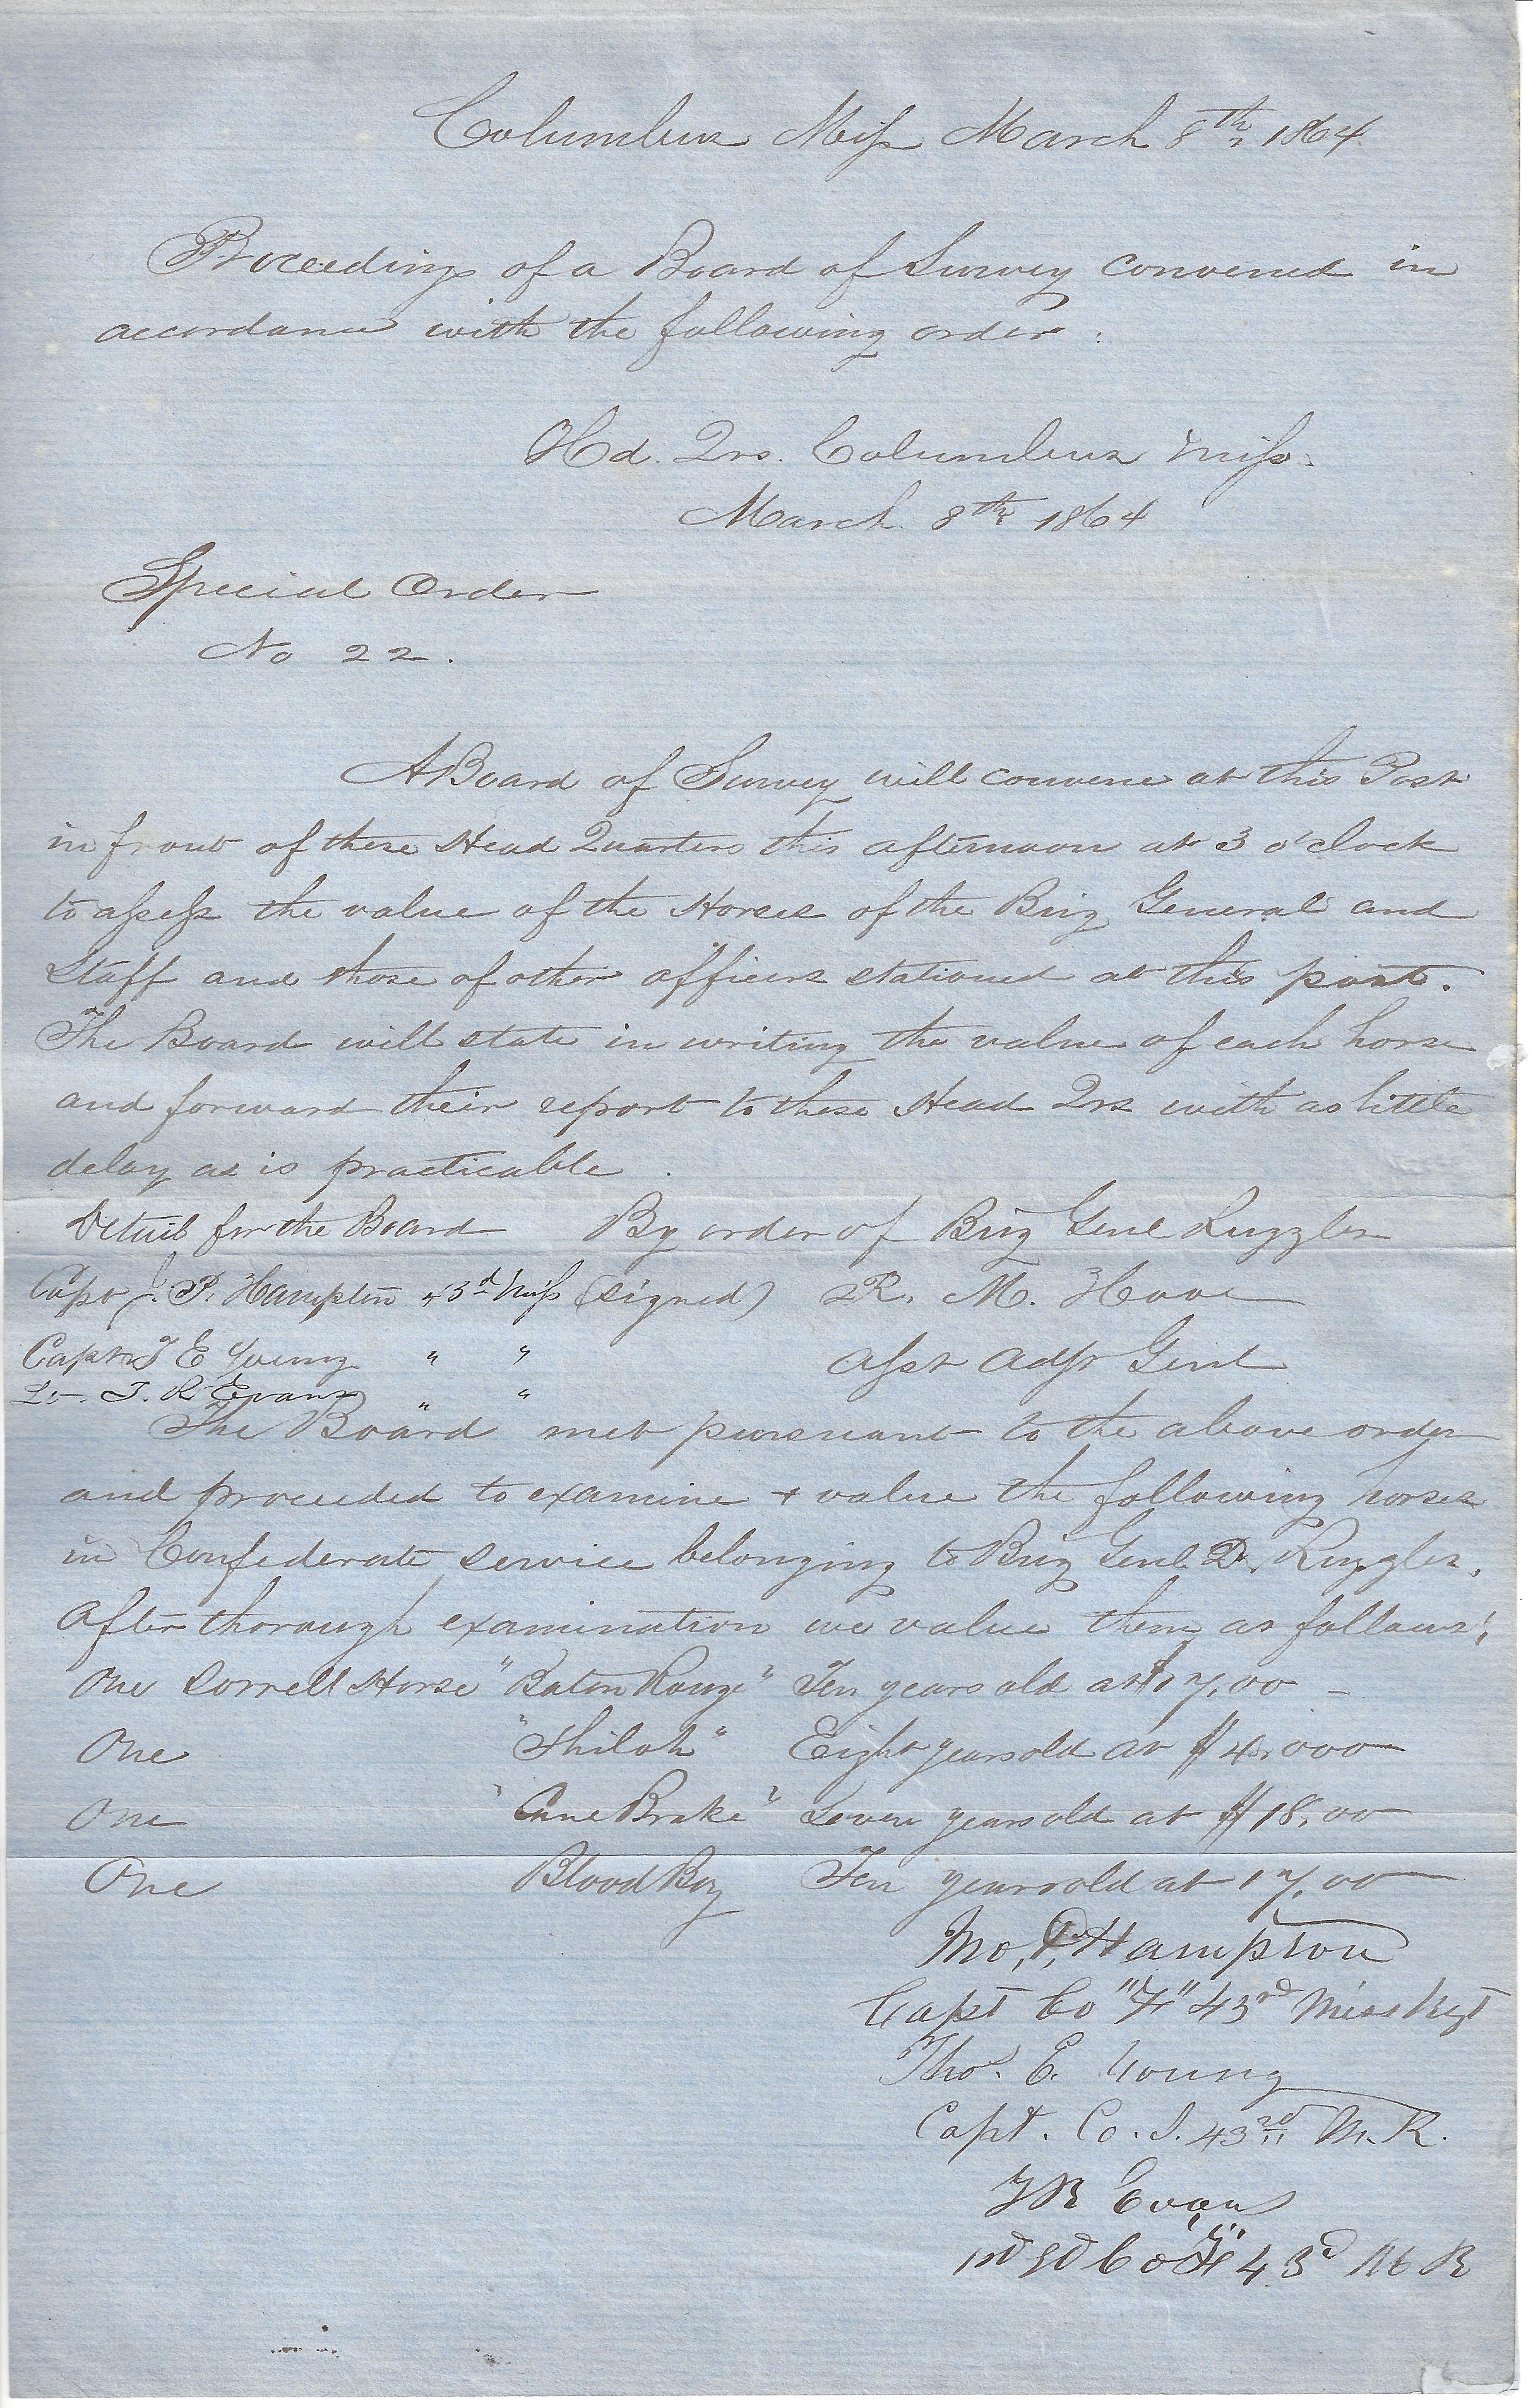 Columbus Miss March 8th, 1864.
Proceedings of a Board of Survey convened in
accordance with the following order:
Hd. Qrs. Columbus Miss.
March 8th 1864
Special Order
No 22.
A Board of Survey will convene at this Post
in front of these Head Quarters this afternoon at 3 o'clock
to assess the value of the Horses of the Brig General and
Staff and those of other officers stationed at this post.
The Board will state in writing the value of each horse
and forward their report to these Head Qrs with as little
delay as is practicable.
Detail for the Board By order of Brig Genl Ruggles
Capt J. P. Hampton 43d Miss (signed) R. M. Hooe
Capt T E Young " " Asst Adjt Genl
Lt. T. R Evans " "
The Board met pursuant to the above order
and proceeded to examine + value the following horses
in Confederate service belonging to Brig Genl. D. Ruggles.
After thorough examination we value them as follows;
One Sorrell Horse "Baton Rouge" Ten years old at $17,00
One "Shiloh" Eight years old at $4,000
One "Cane Brake" Seven years old at $18,00
One Blood Bay Ten years old at 17,00
Jno. P. Hampton
Capt Co 43rd Miss Regt
Thos. E. Young
Capt. Co. I. 43rd M. R.
T R Evans
Co 43d M R